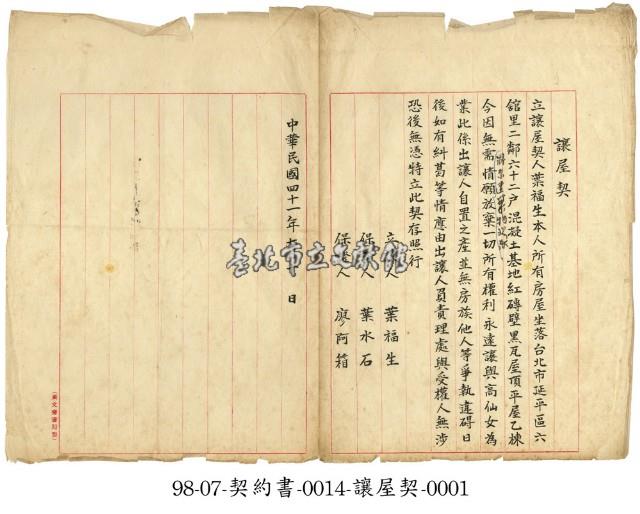 讓屋契
立讓屋契人葉福生本人所有房屋坐落台北市延平區六
舘里二鄰六十二户混凝土基地紅磚壁黑瓦屋頂平屋乙棟
今因無需情願放棄一切所有權利永遠讓與高仙女為
業此係出讓人自置之產並無房族他人等爭執違碍日
後如有糾葛等情應由出讓人負責理處與受權人無涉
恐後無憑特立此契存照行
立 人 葉福生
保 人 葉水石
保 人 廖阿箱
中華民國四十一年 日
臺北市立文獻館
98-07-契約書-0014-讓屋契-0001